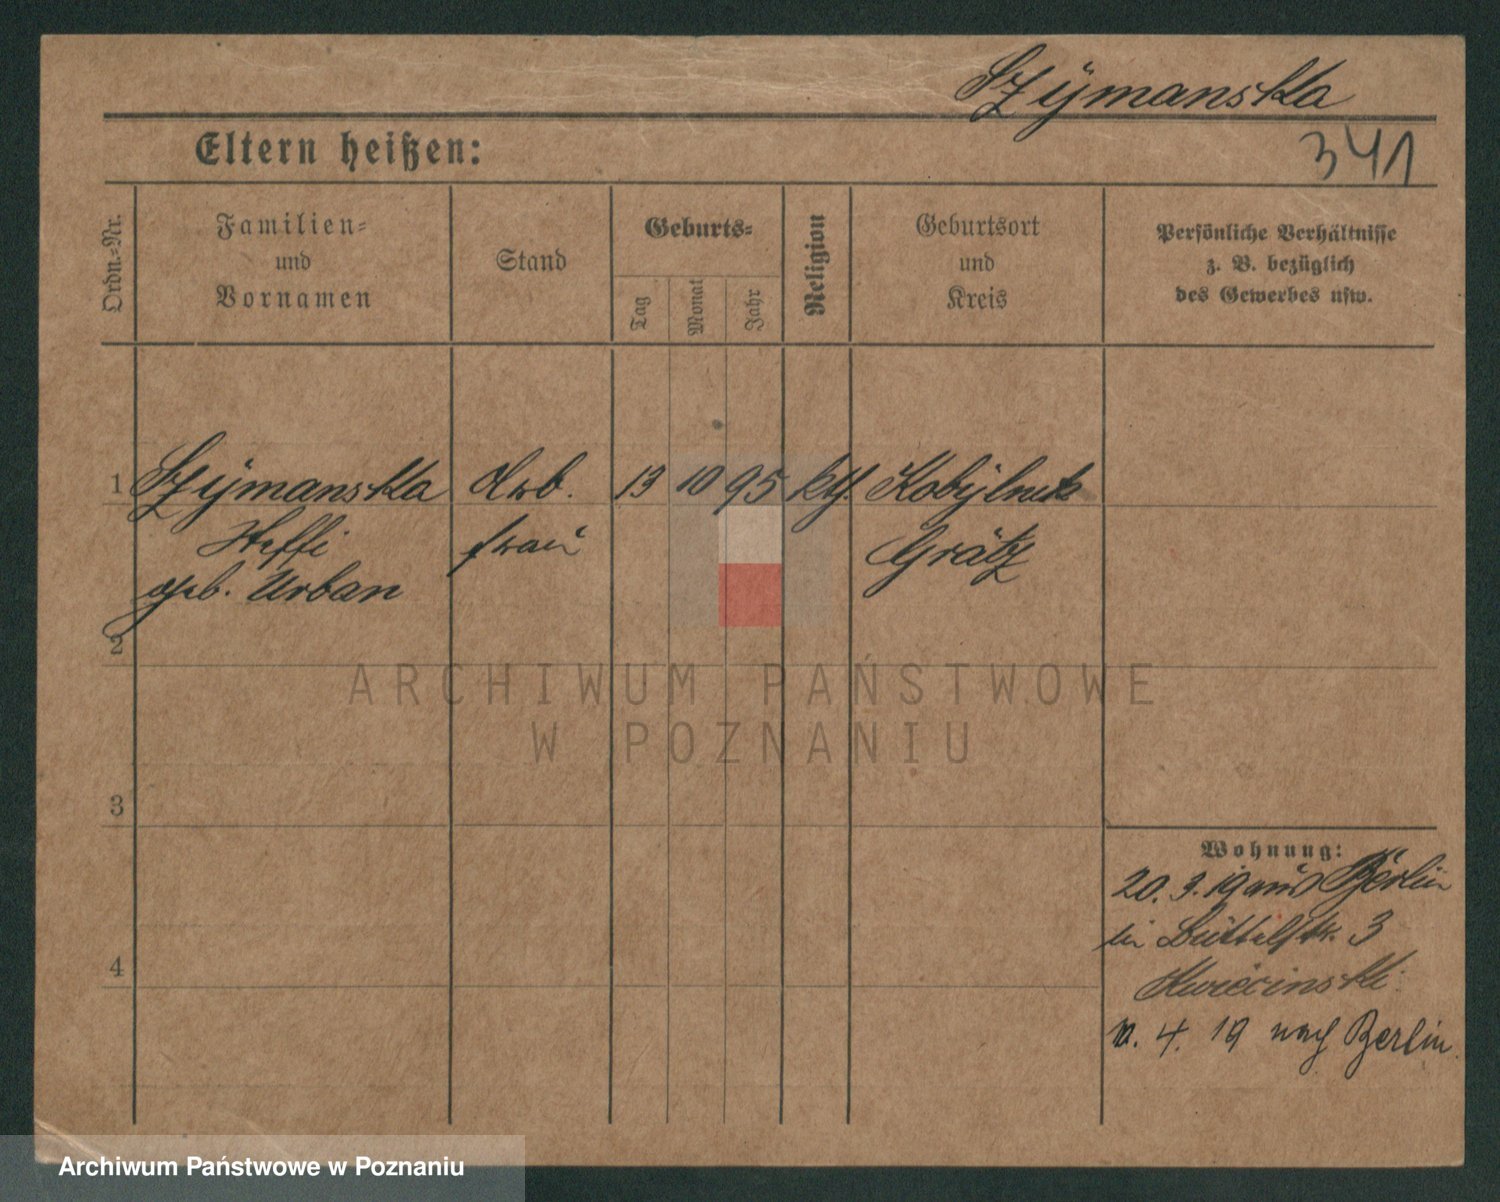 Szymanska
341
Eltern heißen:
Ordn.-Nr.
Familien-
und
Vornamen
Stand
Geburts-
Tag
Monat
Jahr
Religion
Geburtsort
und
Kreis
Persönliche Verhältnisse
z. B. bezüglich
des Gewerbes usw.
1 Szymanska Arb. 13 10 95 kth. Kobylnik
Steffi frau Grätz
geb. Urban
2
ARCHIWUM PAŃSTWOWE
W POZNANIU
3
Wohnung:
20. 3. 19 aus Berlin
3
Kwiecinski
4. 19 nach Berlin.
4
Archiwum Państwowe w Poznaniu